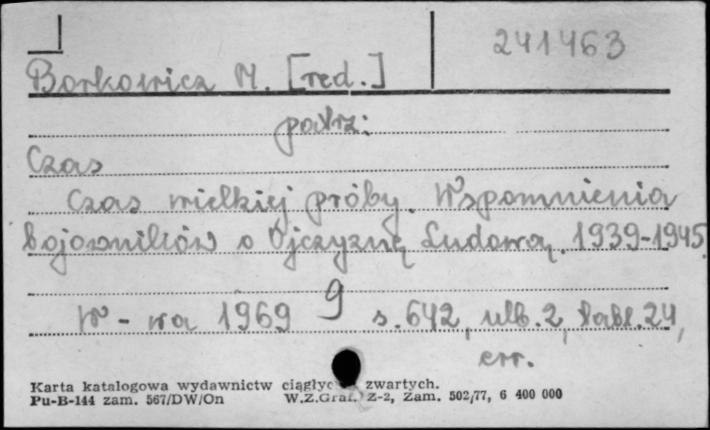 241463
Borkowicz M. [red.]
patrz:
Czas
Czas wielkiej próby. Wspomnienia
bojowników o Ojczyznę Ludową. 1939-1945.
W-wa 1969 9 s. 642, ulb. 2, tabl. 24,
err.
Karta katalogowa wydawnictw ciągłyc zwartych.
Pu-B-144 zam. 567/DW/On W.Z.Graf. Z-2, Zam. 502/77, 6 400 000